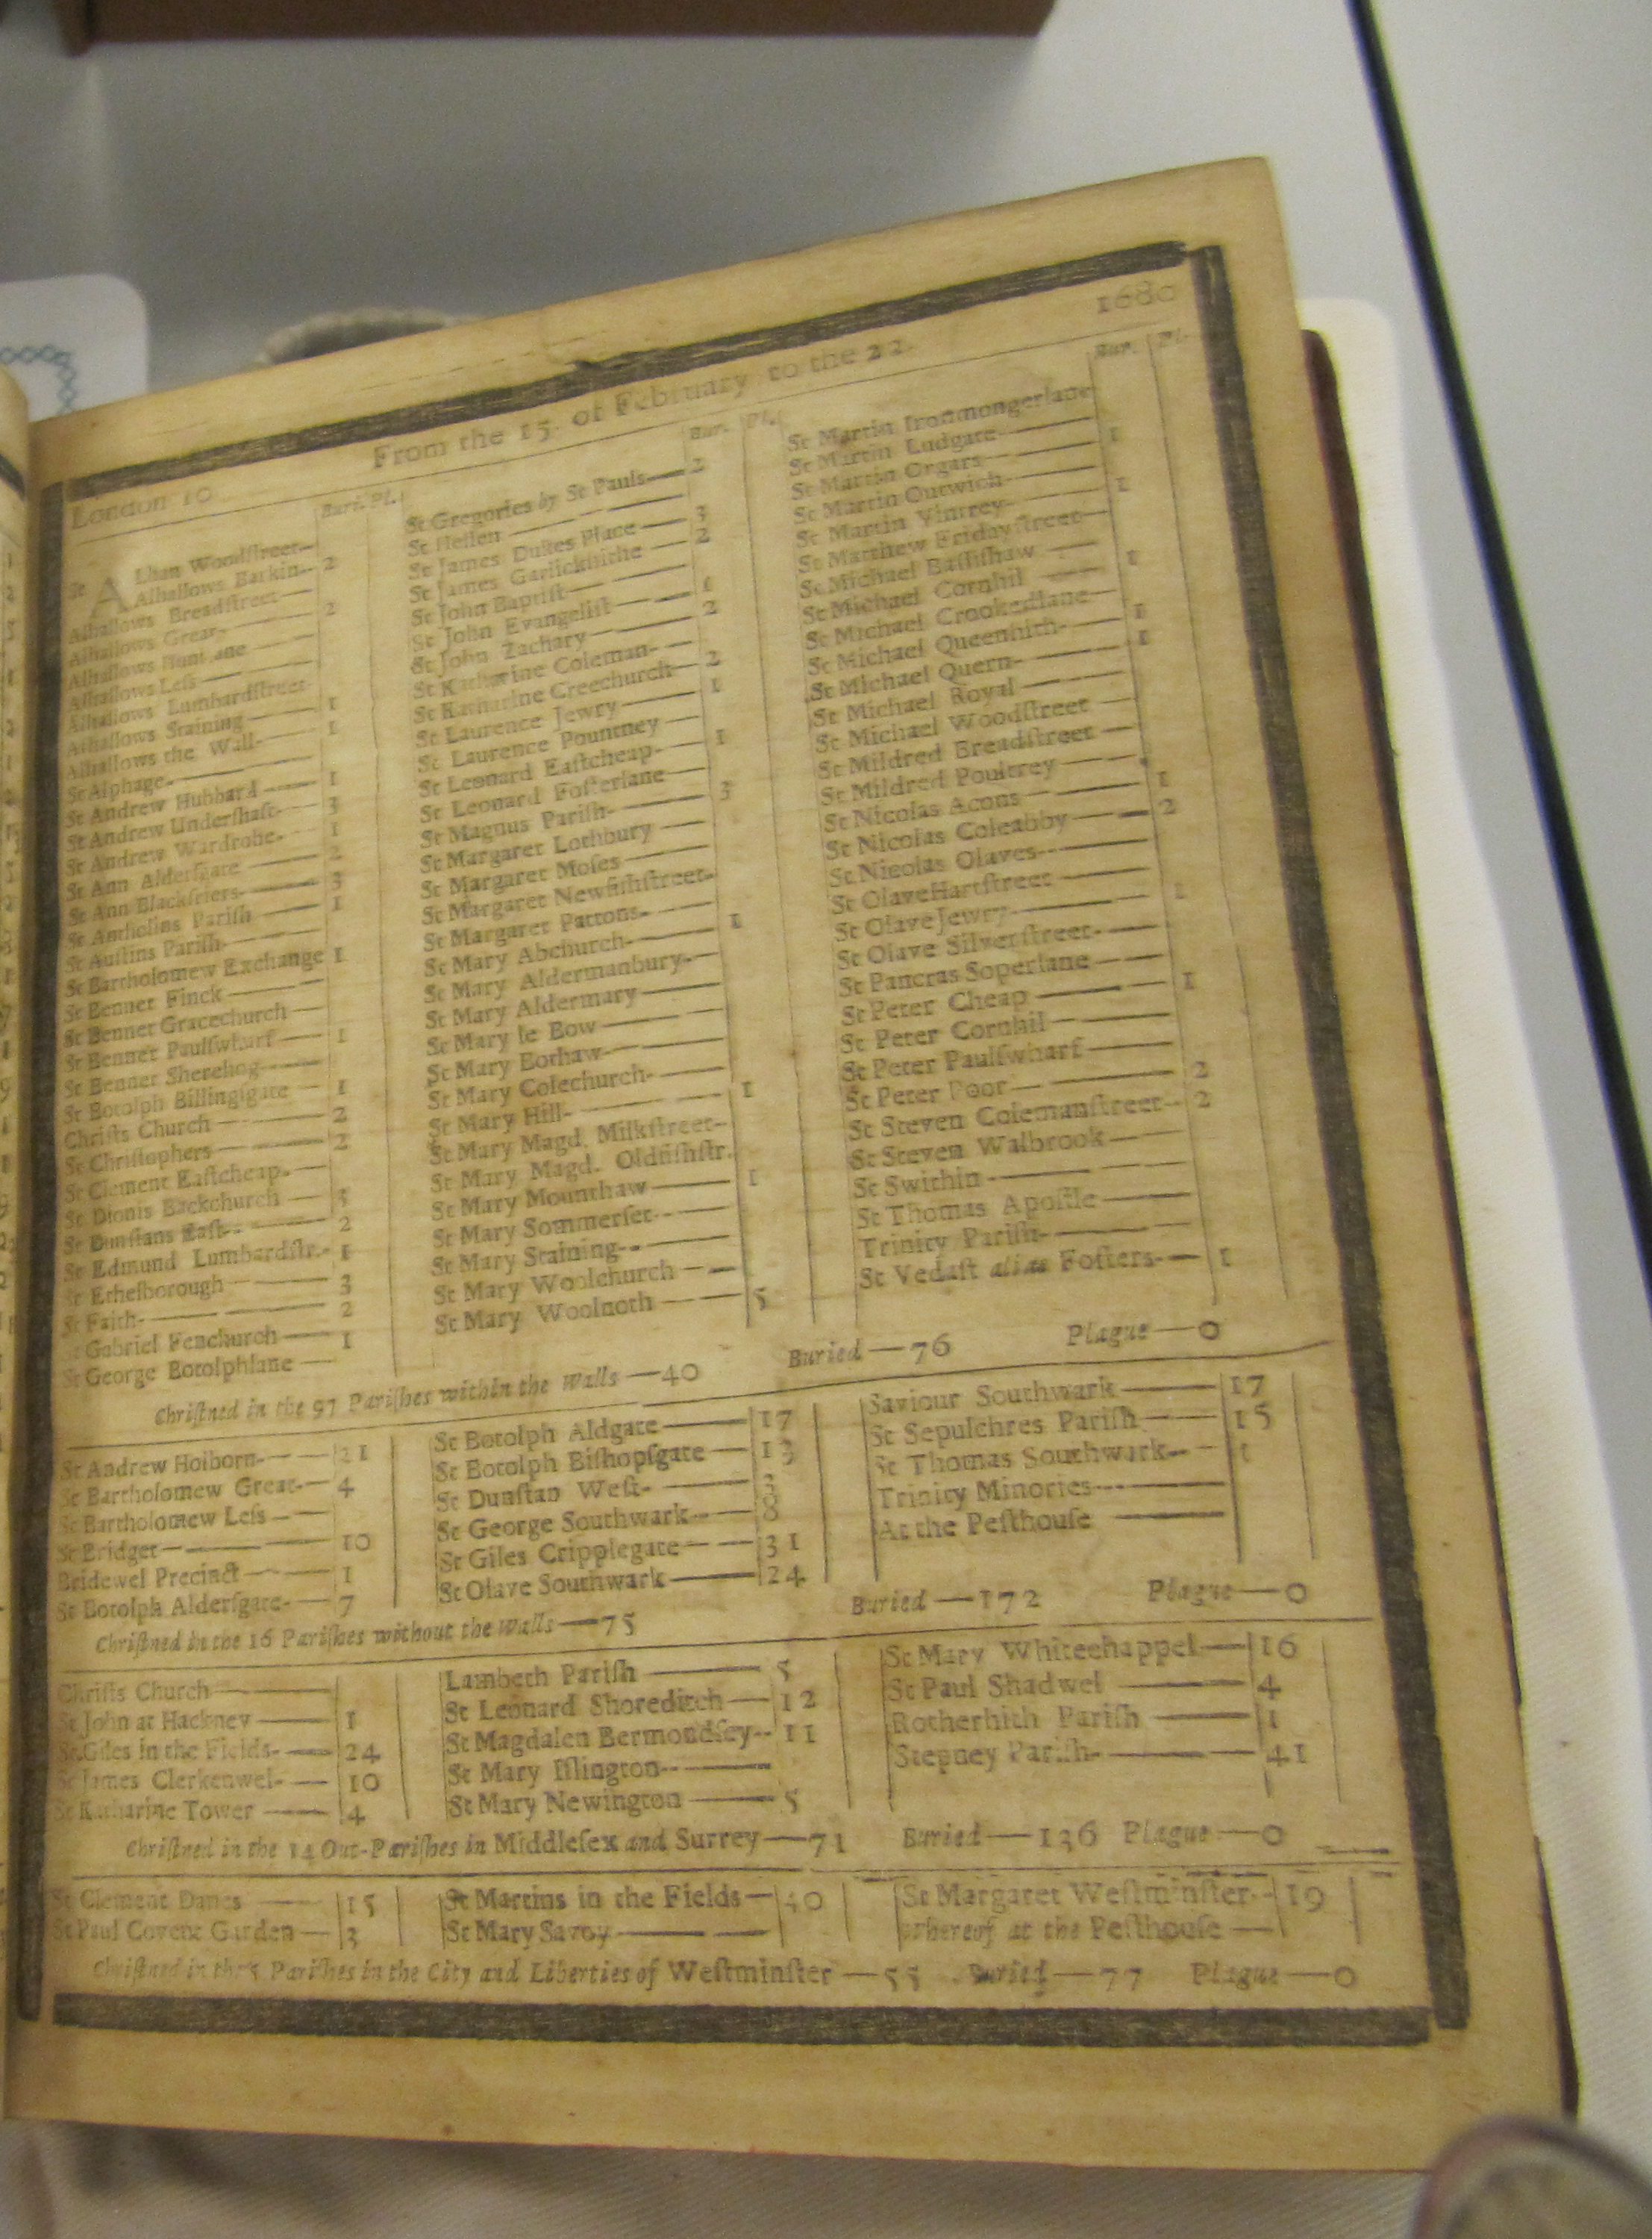 London 10 From the 15. of February to the 22. 1680
Bur. Pl.
St Alban Woodſtreet—
Alhallows Barkin— 2
Alhallows Breadſtreet—
Alhallows Great— 2
Alhallows
Alhallows Leſs —
Alhallows Lumbardſtreet
Alhallows Staining — 1
Alhallows the Wall— 1
St Alphage—
St Andrew Hubbard — 1
St Andrew Underſhaft— 3
St Andrew Wardrobe— 1
St Ann Alderſgate — 2
St Ann Blackfriers— 3
St Antholins Pariſh — 1
St Auſtins Pariſh—
St Bartholomew Exchange 1
St Bennet Finck —
St Bennet Gracechurch —
St Bennet Paulſwharf — 1
St Bennet Sherehog—
St Botolph Billingſgate — 1
Chriſts Church — 2
St Chriſtophers — 2
St Clement Eaſtcheap—
St Dionis Backchurch —
St Dunſtans Eaſt— 2
St Edmund Lumbardſtr.— 1
St Ethelborough — 3
St Faith— 2
St Gabriel Fenchurch — 1
St George Botolphlane —
Bur. Pl.
St Gregories by St Pauls— 2
St Hellen —
St James Dukes Place — 3
St James Garlickhithe — 2
St John Baptiſt —
St John Evangeliſt — 1
St John Zachary — 2
St Katharine Coleman—
St Katharine Creechurch— 2
St Laurence Jewry — 1
St Laurence Pountney —
St Leonard Eaſtcheap— 1
St Leonard Foſterlane —
St Magnus Pariſh— 3
St Margaret Lothbury —
St Margaret Moſes —
St Margaret Newfiſhſtreet—
St Margaret Pattons— 1
St Mary Abchurch—
St Mary Aldermanbury—
St Mary Aldermary —
St Mary le Bow —
St Mary Bothaw—
St Mary Colechurch—
St Mary Hill— 1
St Mary Magd. Milkſtreet—
St Mary Magd. Oldfiſhſtr.
St Mary Mounthaw — 1
St Mary Sommerſet—
St Mary Staining—
St Mary Woolchurch —
St Mary Woolnoth — 5
Bur. Pl.
St Martin Ironmongerlane
St Martin Ludgate— 1
St Martin Orgars—
St Martin Outwich— 1
St Martin Vintrey—
St Matthew Fridayſtreet—
St Michael Baſſiſhaw — 1
St Michael Cornhil —
St Michael Crookedlane— 1
St Michael Queenhith— 1
St Michael Quern—
St Michael Royal —
St Michael Woodſtreet —
St Mildred Breadſtreet —
St Mildred Poultrey — 1
St Nicolas Acons — 2
St Nicolas Coleabby —
St Nicolas Olaves—
St Olave Hartſtreet — 1
St Olave Jewry—
St Olave Silverſtreet—
St Pancras Soperlane — 1
St Peter Cheap —
St Peter Cornhil —
St Peter Paulſwharf —
St Peter Poor — 2
St Steven Colemanſtreet— 2
St Steven Walbrook—
St Swithin —
St Thomas Apoſtle —
Trinity Pariſh—
St Vedaſt alias Foſters— 1
Chriſtned in the 97 Pariſhes within the Walls —40 Buried —76 Plague—0
St Andrew Holborn— 21
St Bartholomew Great— 4
St Bartholomew Leſs —
St Bridget— 10
Bridewel Precinct— 1
St Botolph Alderſgate— 7
St Botolph Aldgate— 17
St Botolph Biſhopſgate — 13
St Dunſtan Weſt— 3
St George Southwark— 8
St Giles Cripplegate— 31
St Olave Southwark — 24
Saviour Southwark — 17
St Sepulchres Pariſh — 15
St Thomas Southwark— 1
Trinity Minories—
At the Peſthouſe —
Chriſtned in the 16 Pariſhes without the Walls —75 Buried —172 Plague—0
Chriſts Church—
St John at Hackney — 1
St Giles in the Fields— 24
St James Clerkenwel— 10
St Katharine Tower — 4
Lambeth Pariſh — 5
St Leonard Shoreditch— 12
St Magdalen Bermondſey— 11
St Mary Iſlington—
St Mary Newington — 5
St Mary Whitechappel— 16
St Paul Shadwel — 4
Rotherhith Pariſh — 1
Stepney Pariſh— 41
Chriſtned in the 14 Out-Pariſhes in Middleſex and Surrey—71 Buried—136 Plague—0
St Clement Danes — 15
St Paul Covent Garden — 3
St Martins in the Fields— 40
St Mary Savoy —
St Margaret Weſtminſter— 19
whereof at the Peſthouſe —
Chriſtned in the 5 Pariſhes in the City and Liberties of Weſtminſter —55 Buried—77 Plague—0